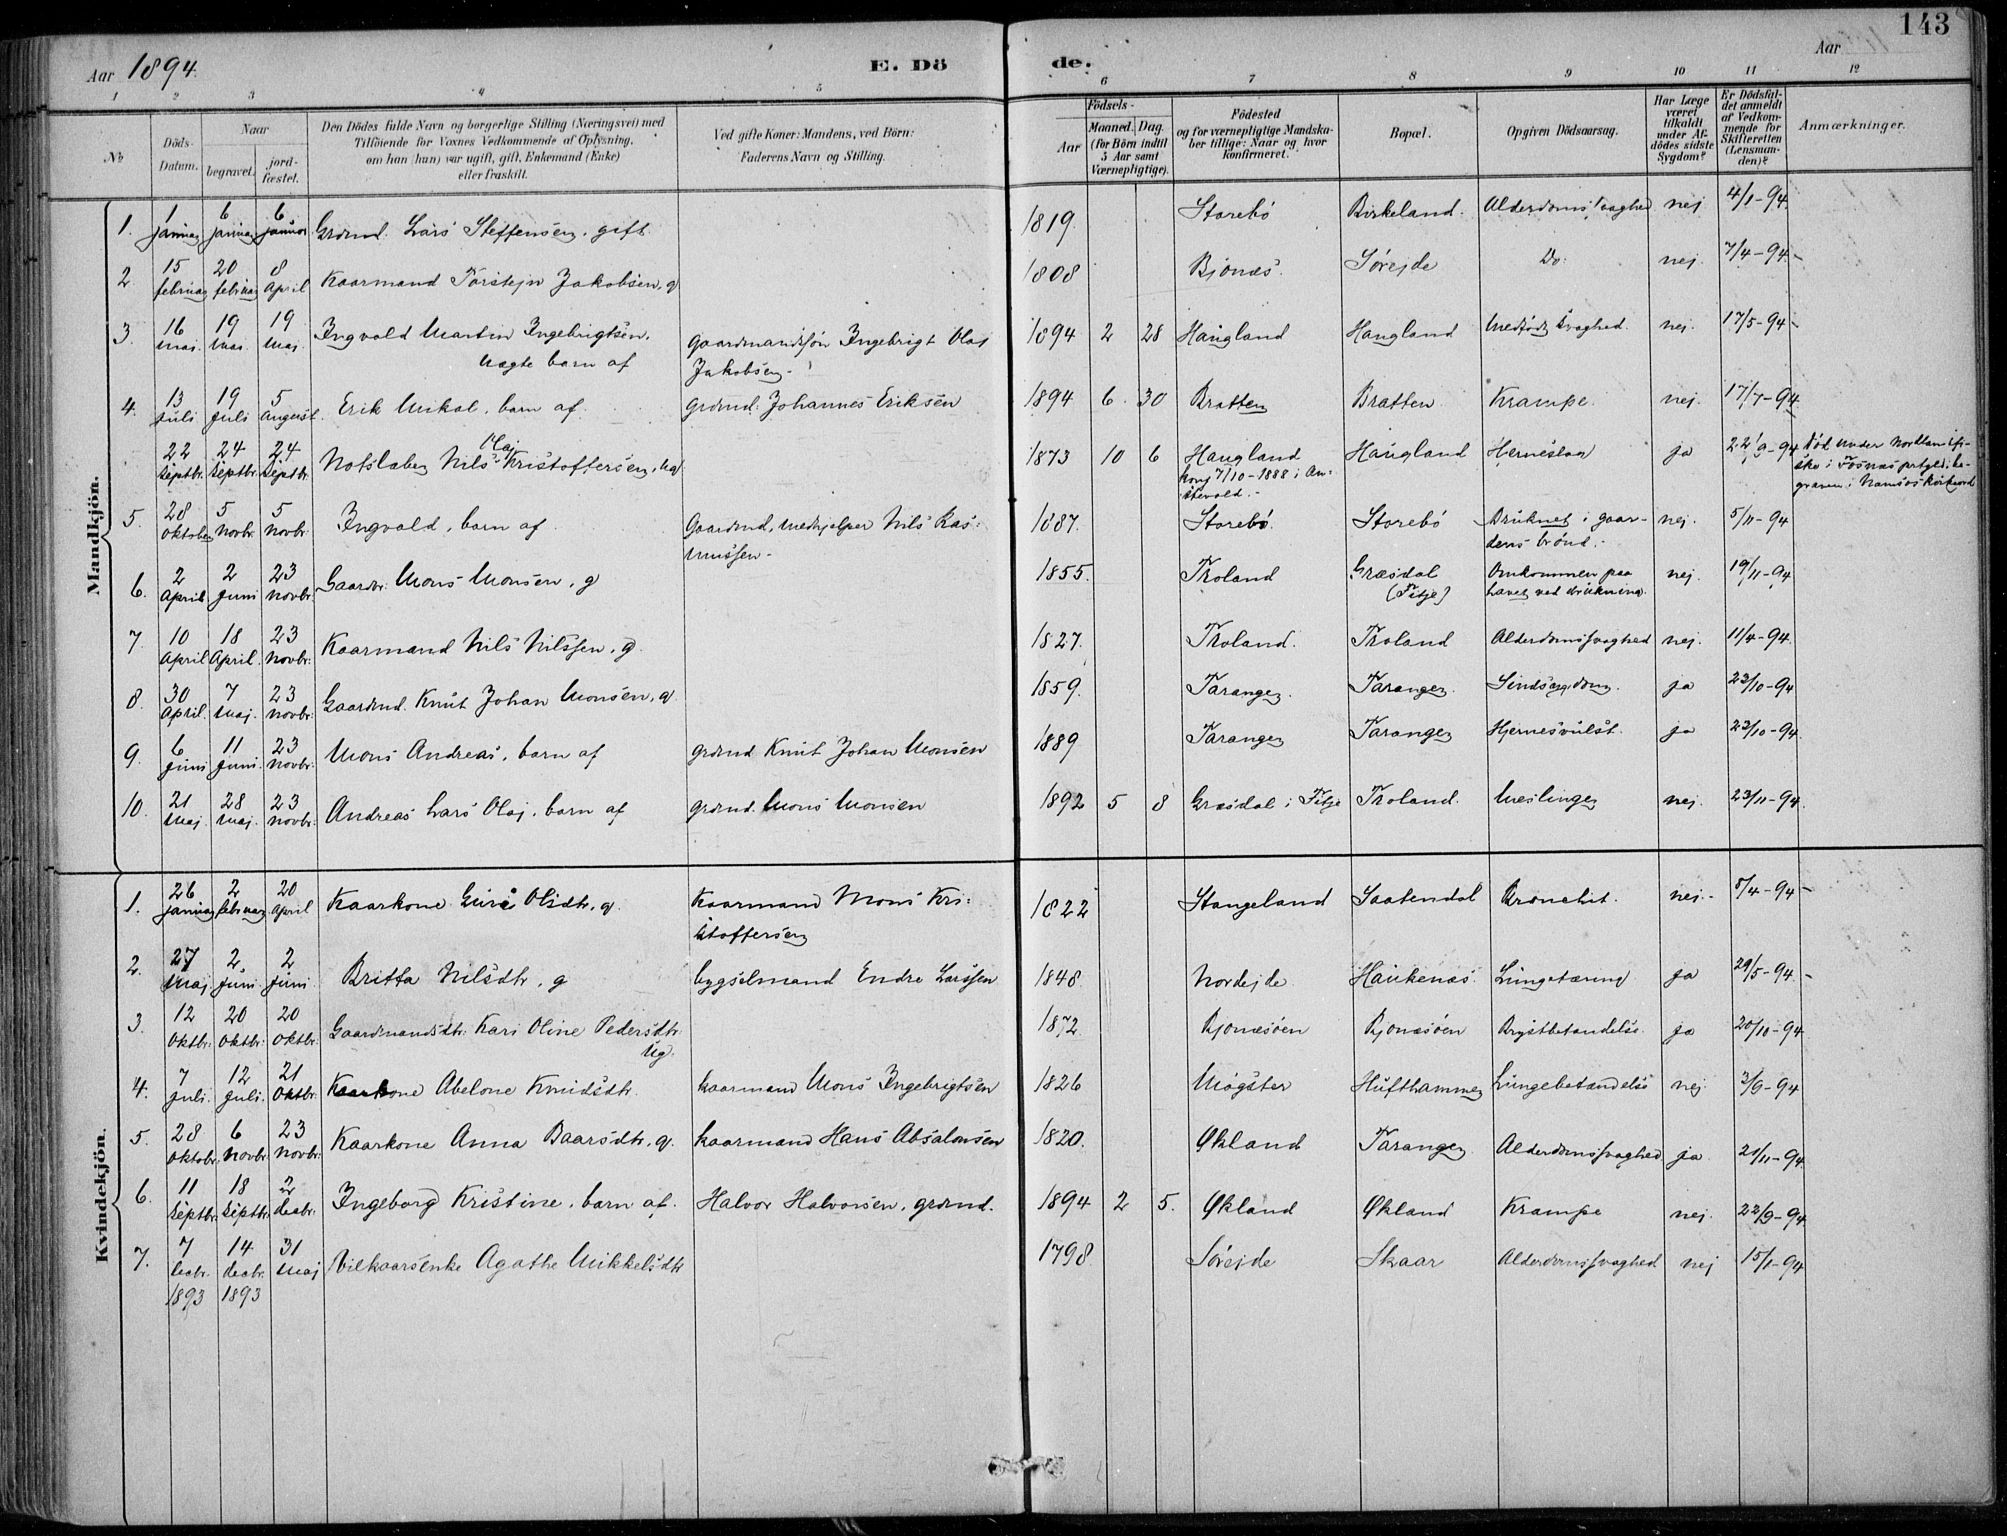 143
Aar 1894.
E. Dö de.
Aar
1 2 3 4 5 6 7 8 9 10 11 12
№
Döds-Datum.
Naar
begravet.
jord-fæstet.
Den Dödes fulde Navn og borgerlige Stilling (Næringsvei) med
Tilföiende for Voxnes Vedkommende af Oplysning,
om han (hun) var ugift, gift, Enkemand (Enke)
eller fraskilt.
Ved gifte Koner: Mandens, ved Börn:
Faderens Navn og Stilling.
Födsels-
Aar
Maaned. Dag.
(for Börn indtil
5 Aar samt
Værnepligtige).
Födested
og for værnepligtige Mandska-
ber tillige: Naar og hvor
konfirmeret.
Bopæl.
Opgiven Dödsaarsag.
Har Læge
været
tilkaldt
under Af-
dödes sidste
Sygdom?
Er Dödsfal-
det anmeldt
af Vedkom-
mende for
Skifteretten
(Lensman-
den)?
Anmærkninger.
Mandkjön.
1. 1 januar 6 januar 6 januar Grdmd. Lars Steffensen, gift. 1819. Storebö Birkeland. Alderdomssvaghed nej 4/1-94.
2 15 februar 20 februar 8 April Kaarmand Torstejn Jakobsen, g 1808 Bjonæs. Sörejde Do. nej. 7/4-94.
3. 16 Maj. 19 Maj. 19 Maj. Ingvald Martin Ingebrigtsen, uægte barn af gaardmandssön Ingebrigt Olaj Jakobsen. 1894 2 28 Haugland Haugland Medfödt svaghed. nej. 17/5-94
4. 13 Juli 19 Juli 5 August. Erik Mikal, barn af. grdmd: Johannes Eriksen 1894 6. 30 Bratten Bratten Krampe. nej. 17/7-94
22 Septbr. 24 Septbr. 24 Septbr. Notslaben Nils Olaj Kristoffersen, ug 1873 10 6 Haugland konf 7/10-1888 i Austevold. Haugland Hjerneslag ja 22/9-94 död under Nordlandsfiske i Fosnæs prstgjld; begraven i Namsos Kirkegrd
5. 28 Oktober 5 Novbr. 5 Novbr. Ingvald, barn af Gaardmd, medhjelper Nils Rasmussen. 1887. Storebö. Storebö Druknet i gaardens brönd. nej. 5/11-94
6. 2 April 2 Juni 23 Novbr. Gaardbr. Mons Monsen, g 1855. Troland Græsdal (Fitje) Omkommen paa havet ved drukning. nej. 19/11-94
7. 10 April 18 April. 23 Novbr. Kaarmand Nils Nilssen, g. 1827. Troland. Troland Alderdomssvaghed nej. 11/4-94.
8. 30 April. 7 Maj. 23 Novbr. Gaardmd. Knut Johan Monsen, g. 1859. Taranger. Taranger. Sindssygdom. ja 23/10-94
9. 6 Juni 11 Juni. 23 Novbr. Mons Andreas, barn af grdmd Knut Johan Monsen 1889 Taranger Taranger Hjernesvulst. ja 23/10-94.
10. 21 Maj. 28 Maj. 23 Novbr. Andreas Lars Olaj, barn af grdmd. Mons Monsen 1892 5 8 Græsdal i Fitje Troland. Meslinger nej. 23/11-94.
Kvindekjön.
1. 26 januar 2 februar 20 April Kaarkone Guri Olsdtr, g. Kaarmand Mons Kristoffersen 1822 Stangeland Saatendal Bronchit. nej. 5/4-94
2. 27 Maj 2 Juni 2 Juni Britta Nilsdtr, g bygselmand Endre Larssen 1848 Nordejde. Haukenæs. Lungetæring ja 29/5-94.
3. 12 Oktbr. 20 Oktbr. 20 Oktbr. Gaardmandsdtr. Kari Oline Pedersdtr ug. 1872 Bjonæsöen Bjonæsöen Brystbetændelse. ja 20/10-94
4. 7 Juli. 12 Juli. 21 Oktbr. Kaarkone Abelone Knudsdtr. kaarmand Mons Ingebrigtsen 1826 Mögster Hufthammer Lungebetændelse nej 3/9-94
5. 28 Oktobr. 6 Novbr. 23 Novbr. Kaarkone Anna Baarsdtr, g. kaarmand Hans Absalonsen 1820. Økland Taranger Alderdomssvaghed ja 21/11-94
6. 11 Septbr. 18 Septbr. 2 Decbr. Ingeborg Kristine, barn af. Halvor Halvorsen, grdmd. 1894 2 5. Økland Økland Krampe nej. 22/9-94
7. 7 Decbr. 1893 14 decbr. 1893 31 Maj Vilkaarsenke Agathe Mikkelsdtr 1798 Sörejde Skaar Alderdomssvaghed nej 15/1-94